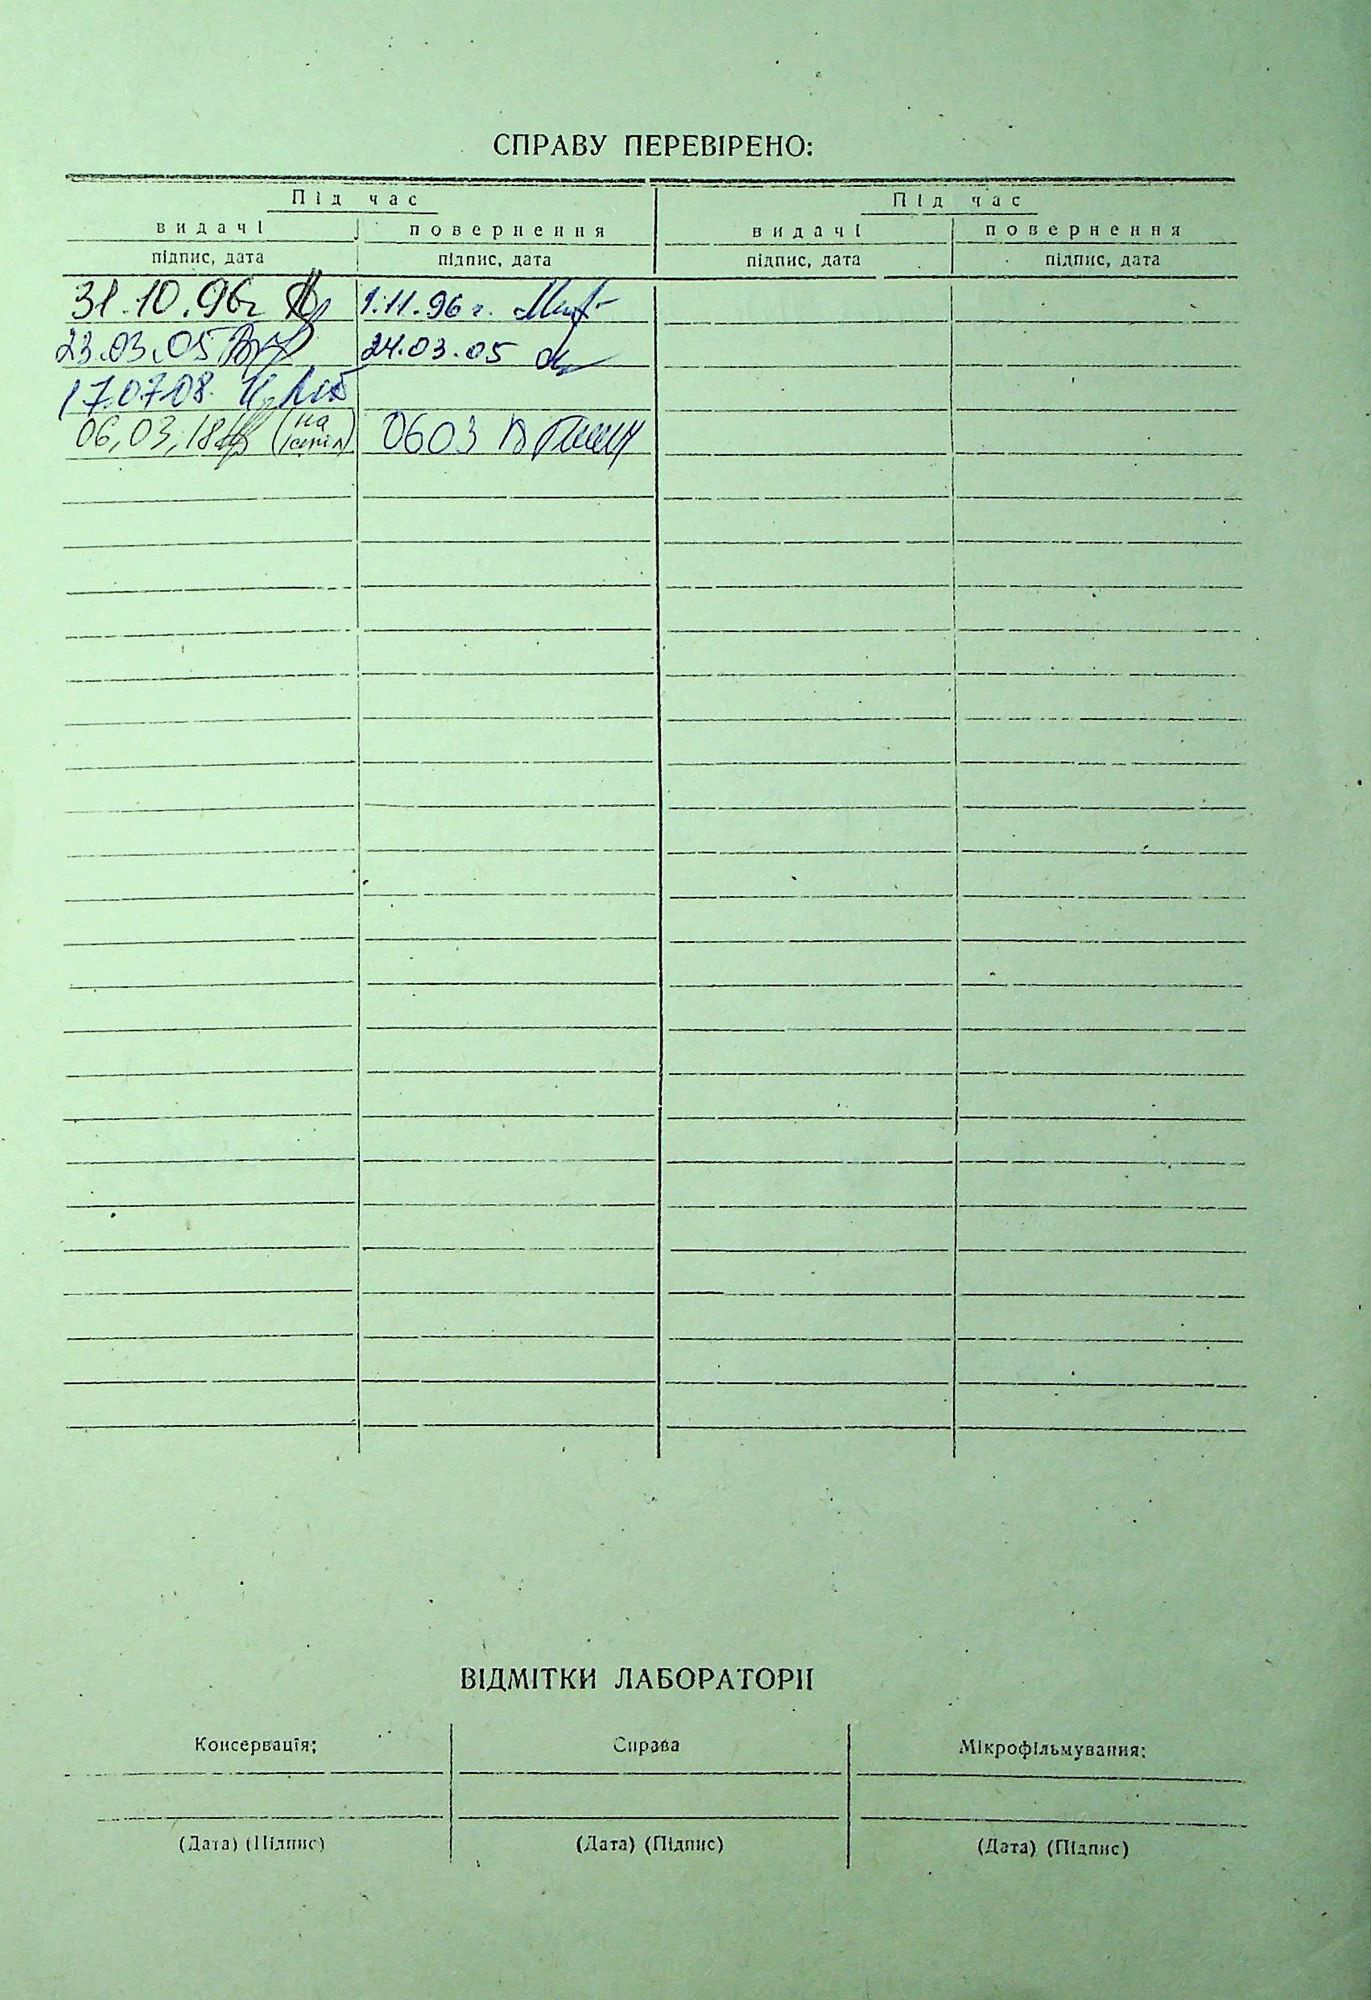 СПРАВУ ПЕРЕВІРЕНО:
Під час Під час
видачі повернення видачі повернення
підпис, дата підпис, дата підпис, дата підпис, дата
31.10.96г 1.11.96г.
23.03.05 24.03.05
17.07.08.
06,03,18 (на 0603
ВІДМІТКИ ЛАБОРАТОРІІ
Консервація; Справа Мікрофільмування:
(Дата) (Підпис) (Дата) (Підпис) (Дата) (Підпис)